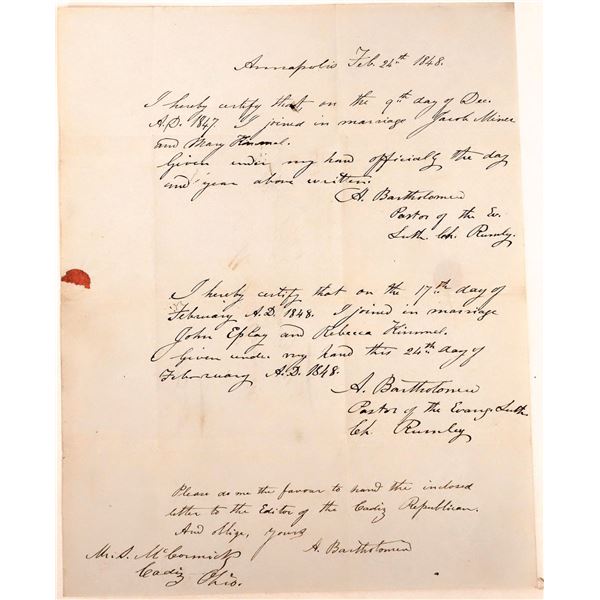 Annapolis Feb. 24th 1848.
I hereby certify that on the 9th day of Dec.
A.D. 1847. I joined in marriage Jacob Miner
and Mary Kimmel.
Given under my hand officially the day
and year above written.
A. Bartholomew
Pastor of the Ev.
Luth. Ch. Rumley.
I hereby certify that on the 17th day of
February A.D. 1848. I joined in marriage
John Eplay and Rebecca Kimmel.
Given under my hand this 24th day of
February A.D. 1848.
A. Bartholomew
Pastor of the Evang. Luth.
Ch. Rumley
Please do me the favour to hand the inclosed
letter to the Editor of the Cadiz Republican.
And oblige, yours
A. Bartholomew
Mr. S. McCormick
Cadiz Ohio.